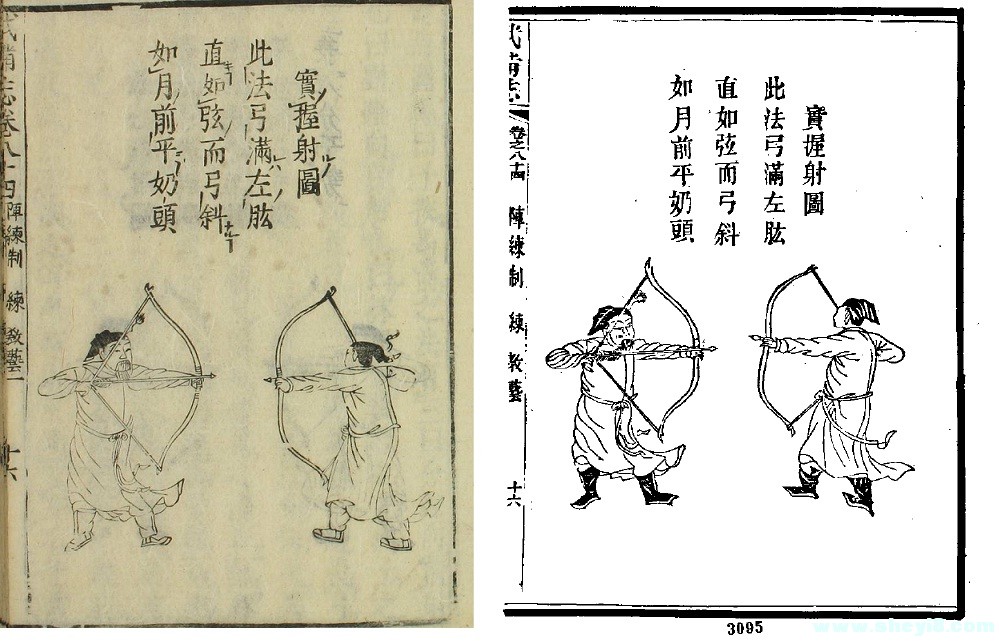 實握射圖
此法弓滿左肱
直如弦而弓斜
如月前平奶頭
武備志卷八十四 陣練制 練 教藝一
十六
實握射圖
此法弓滿左肱
直如弦而弓斜
如月前平奶頭
武備志
卷之八十四 陣練制 練 教藝
十六
3095